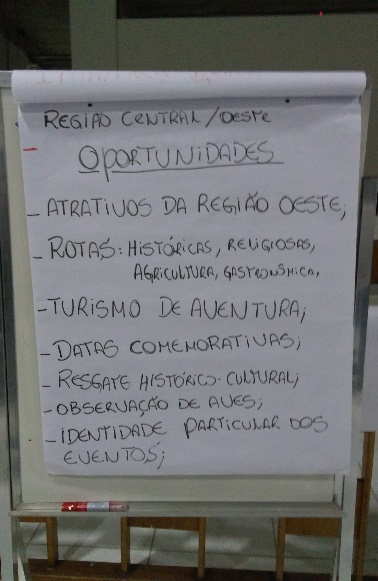 REGIÃO CENTRAL / OESTE
OPORTUNIDADES
- ATRATIVOS DA REGIÃO OESTE;
- ROTAS: HISTÓRICAS, RELIGIOSAS,
AGRICULTURA, GASTRONÔMICA,
- TURISMO DE AVENTURA;
- DATAS COMEMORATIVAS;
- RESGATE HISTÓRICO-CULTURAL;
- OBSERVAÇÃO DE AVES;
- IDENTIDADE PARTICULAR DOS
EVENTOS;